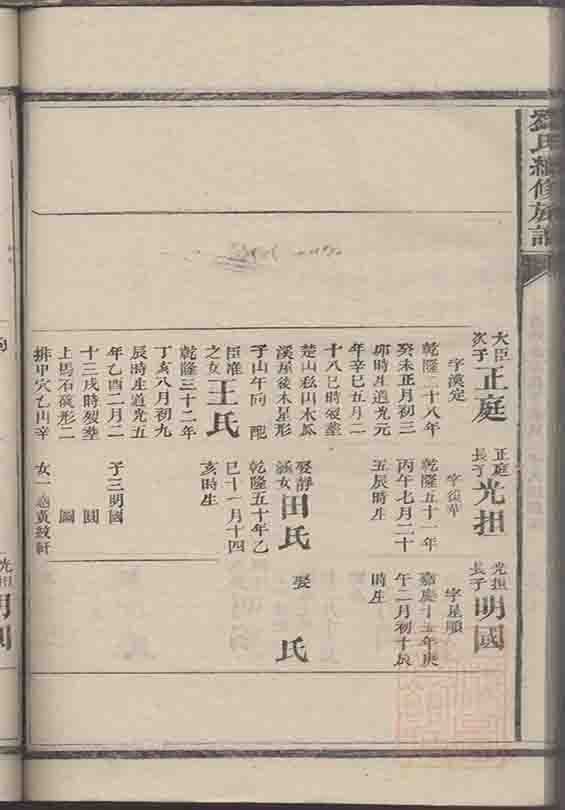 氏續修族譜
大臣次子 正庭
字漢定
乾隆二十八年
癸未正月初三
卯時生道光元
年辛巳五月二
十八巳時歿塟
楚山私山木瓜
溪屋後木星形
子山午向 配
臣准之女 王氏
乾隆三十二年
丁亥八月初九
辰時生道光五
年乙酉二月二
十三戌時歿塟
上馬石破形二
排甲穴乙山辛
正庭長子 光担
字復華
乾隆五十一年
丙午七月二十
五辰時生
娶靜涵女 田氏
乾隆五十年乙
巳十一月十四
亥時生
子三明國
圓
圖
女一適黃紋軒
光担長子 明國
字星順
嘉慶十五年庚
午二月初十辰
時生
娶 氏
光担